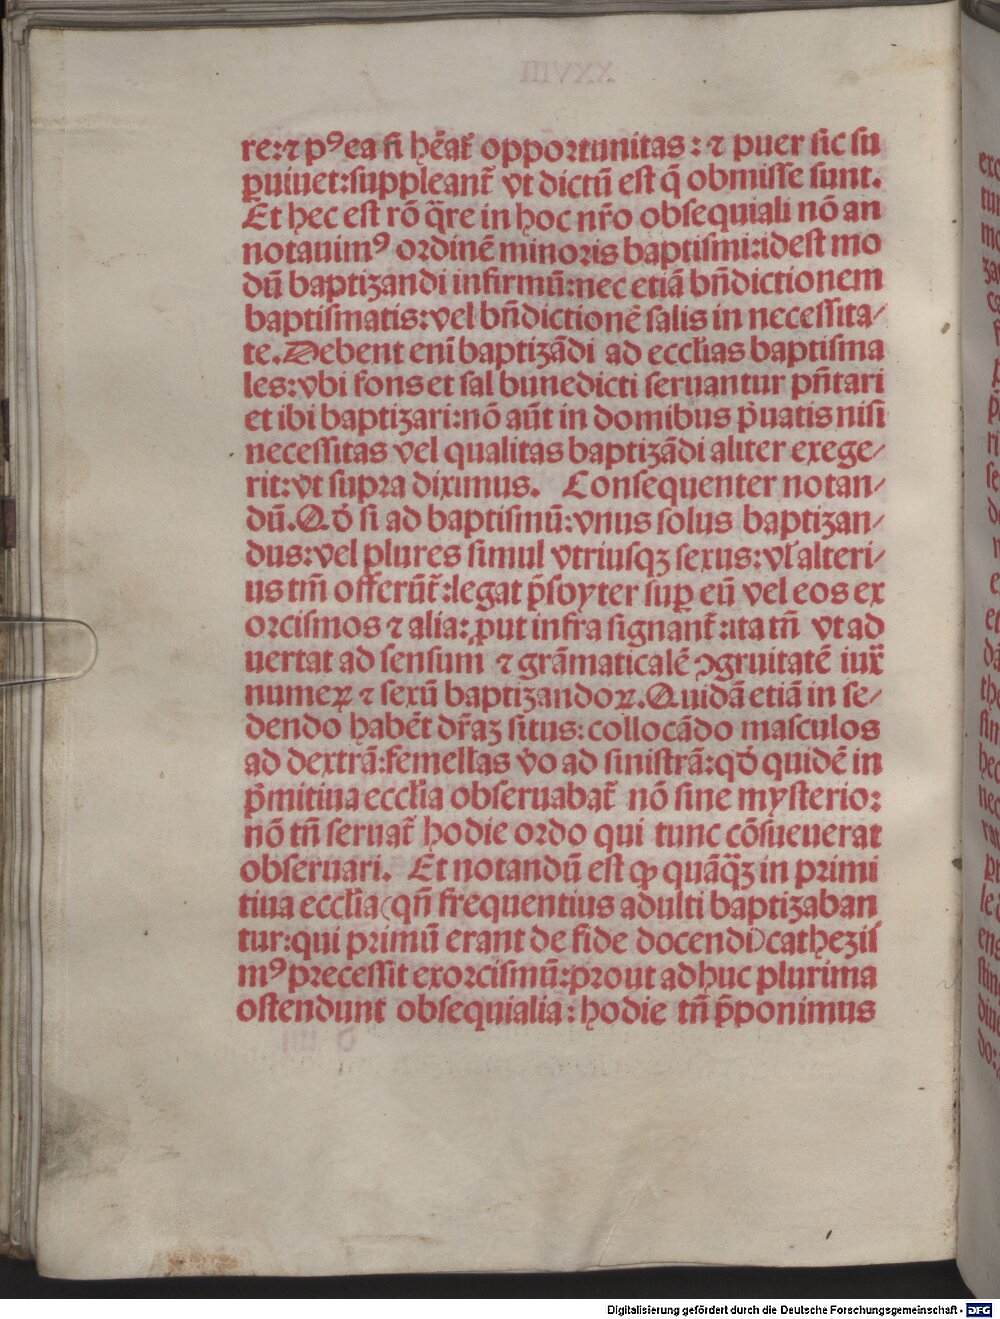 re: ⁊ pꝰea si hẽat̃ opportunitas: ⁊ puer sic su
ꝑuiuet: suppleant̃ vt dictũ est q̃ obmisse sunt.
Et hec est rõ q̃re in hoc nr̃o obsequiali nõ an
notauimꝰ ordinẽ minoris baptismi: idest mo
dũ baptizandi infirmũ: nec etiã bñdictionem
baptismatis: vel bñdictionẽ salis in necessita/
te. Debent eni baptizãdi ad eccl̃ias baptisma
les: vbi fons et sal bunedicti seruantur pñtari
et ibi baptizari: nõ aũt in domibus p̃uatis nisi
necessitas vel qualitas baptizãdi aliter exege/
rit: vt supra diximus. Consequenter notan/
dũ. Qd̓ si ad baptismũ: vnus solus baptizan/
dus: vel plures simul vtriusqꝫ sexus: vl̃ alteri/
us tm̃ offerũt̃: legat p̃sbyter suꝑ eũ vel eos ex
orcismos ⁊ alia: ꝓut infra signant̃: ita tñ vt ad
uertat ad sensum ⁊ grãmaticalẽ ꝯgruitatẽ iux̃
numeꝝ ⁊ sexũ baptizandoꝝ. Quidã etiã in se/
dendo habẽt dr̃aꝫ situs: collocãdo masculos
ad dextrã: femellas v̓o ad sinistrã: qd̓ quidẽ in
p̃mitiua eccl̃ia obseruabat̃ nõ sine mysterio:
nõ tñ seruat̃ hodie ordo qui tunc cõsueuerat
obseruari. Et notandũ est ꝙ quãq̃ꝫ in primi
tiua eccl̃ia (qñ frequentius adulti baptizaban
tur: qui primũ erant de fide docendi) cathezis
mꝰ precessit exorcismũ: prout adhuc plurima
ostendunt obsequialia: hodie tñ p̃ponimus
Digitalisierung gefördert durch die Deutsche Forschungsgemeinschaft - DFG